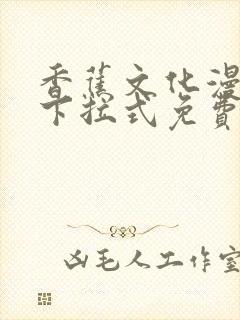 香蕉文化漫
下拉式免費
凶毛人工作室